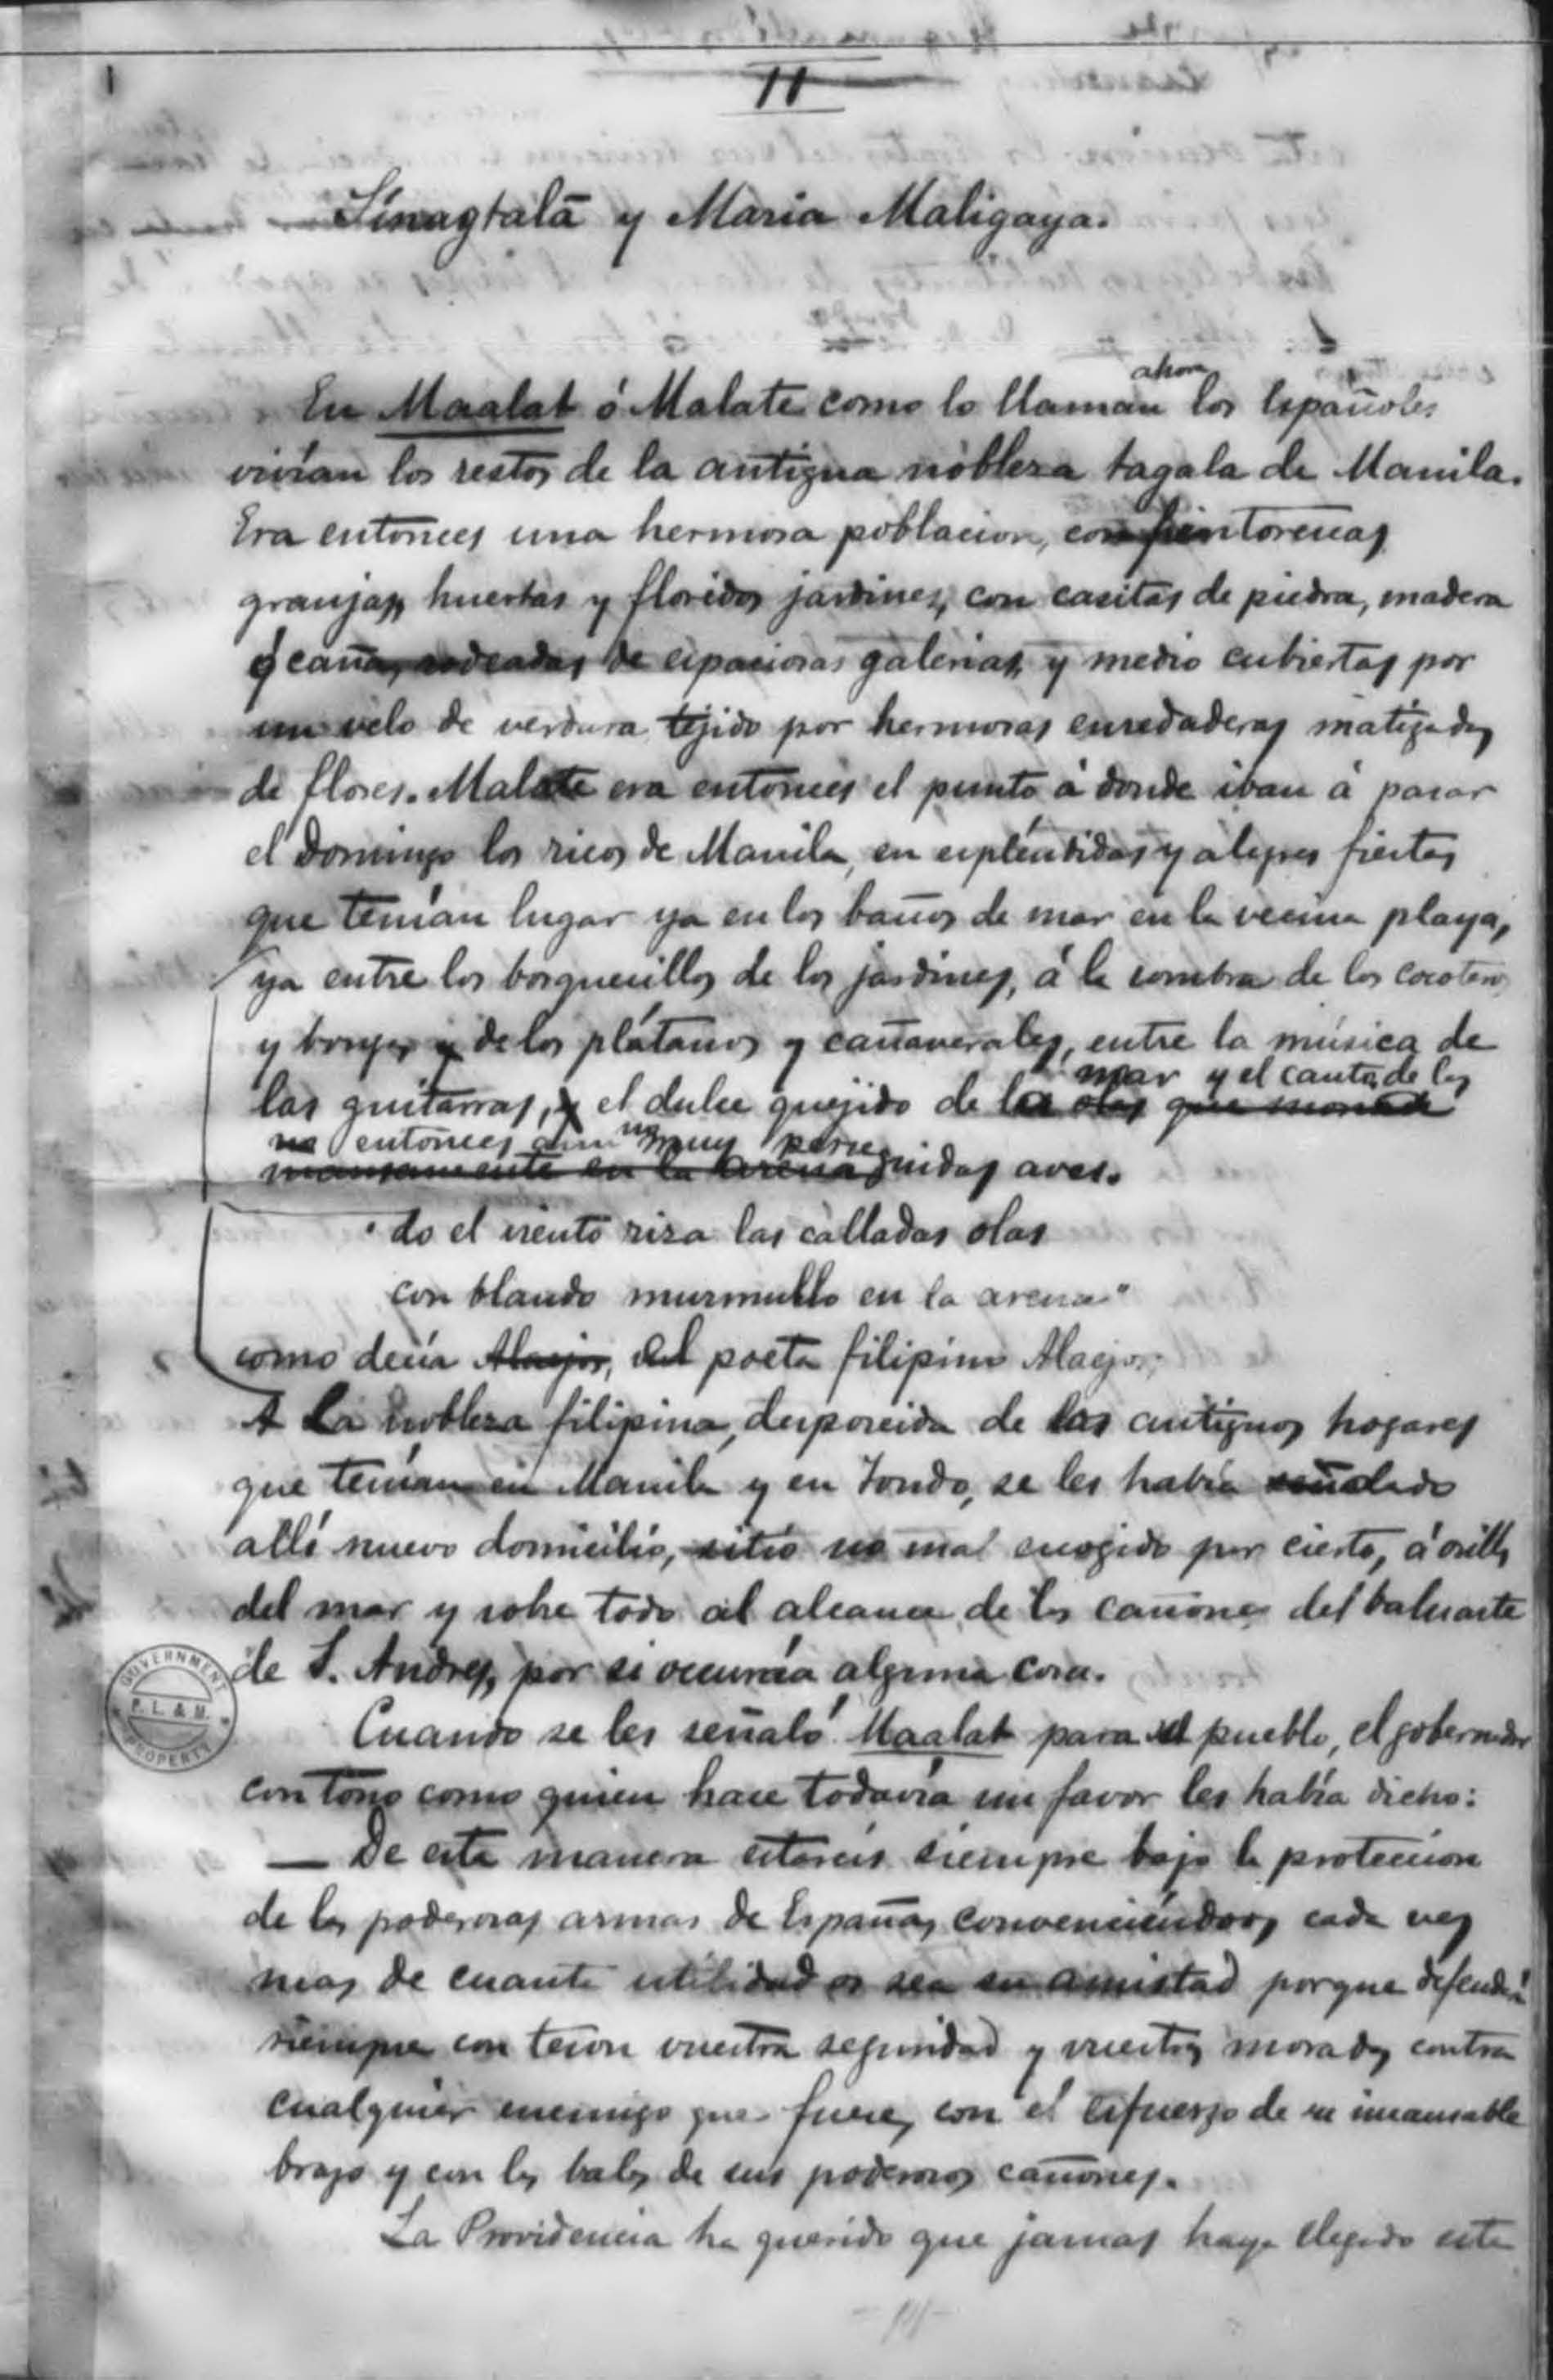 1
II
Sinagtalà y Maria Maligaya.
ahora
En Maalat ó Malate como lo llaman los Españoles
vivian los restos de la antigua nobleza tagala de Manila.
Era entonces una hermosa poblacion, con pintorescas
granjas, huertas y floridos jardines, con casitas de piedra, madera
ó caña, rodeadas de espaciosas galerias, y medio cubiertas por
un velo de verdura tejido por hermosas enredaderas matizadas
de flores. Malate era entonces el punto á donde iban á pasar
el Domingo los ricos de Manila, en espléndidas y alegres fiestas
que tenían lugar ya en los baños de mar en la vecina playa,
ya entre los bosquecillos de los jardines, á la sombra de los cocoteros
y bongas y de los plátanos y cañaverales, entre la música de
mar y el canto de las
las guitarras, y el dulce quejido de las olas que
entonces aun no muy perse
mansamente en la arena guidas aves.
"do el viento riza las calladas olas
con blando murmullo en la arena"
como decía Alaejos, el poeta filipino Alaejos.
A La nobleza filipina, desposeida de los antiguos hogares
que tenían en Manila y en Tondo, se les había señalado
allí nuevo domicilio, sitio no mal escogido por cierto, á orillas
del mar y sobre todo al alcance de los cañones del baluarte
de S. Andres, por si ocurría alguna cosa.
Cuando se les señaló Maalat para el pueblo, el gobernador
con tono como quien hace todavía un favor les había dicho:
— De esta manera estareis siempre bajo la proteccion
de las poderosas armas de España, convenciéndoos cada vez
mas de cuanta utilidad os sea su amistad porque defenderá
siempre con teson vuestra seguridad y vuestras moradas contra
cualquier enemigo que fuere, con el esfuerzo de su incansable
brazo y con las balas de sus poderosos cañones.
La Providencia ha querido que jamas haya llegado este
GOVERNMENT
P. L. & M.
PROPERTY